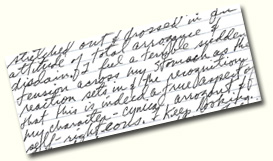 stretched out & crossed in an
attitude of total arrogance &
disclaim, I feel a terrible sudden
tension across my stomach as the
reaction sets in & the recognition
that this is indeed a true aspect of
my character - cynical, arrogant,
self-righteous. I keep looking,